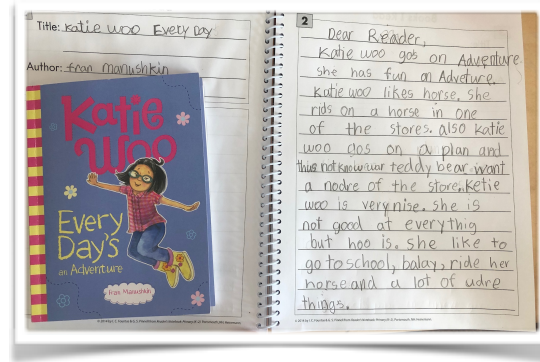 Title: Katie Woo Every Day
Author: fran Manushkin
Katie
Woo
Every
Day's
an Adventure
Fran Manushkin
2
Dear Reader,
Katie woo gos on Adventure.
she has fun on Adveture.
Katie woo likes horse. she
rids on a horse in one
of the stores. also Katie
woo gos on a plan and
thus not know war teddy bear want
a nodre of the store. Ketie
woo is very nise. she is
not good at everythig
but hoo is. she like to
go to school, balay, ride her
horse and a lot of udre
things.